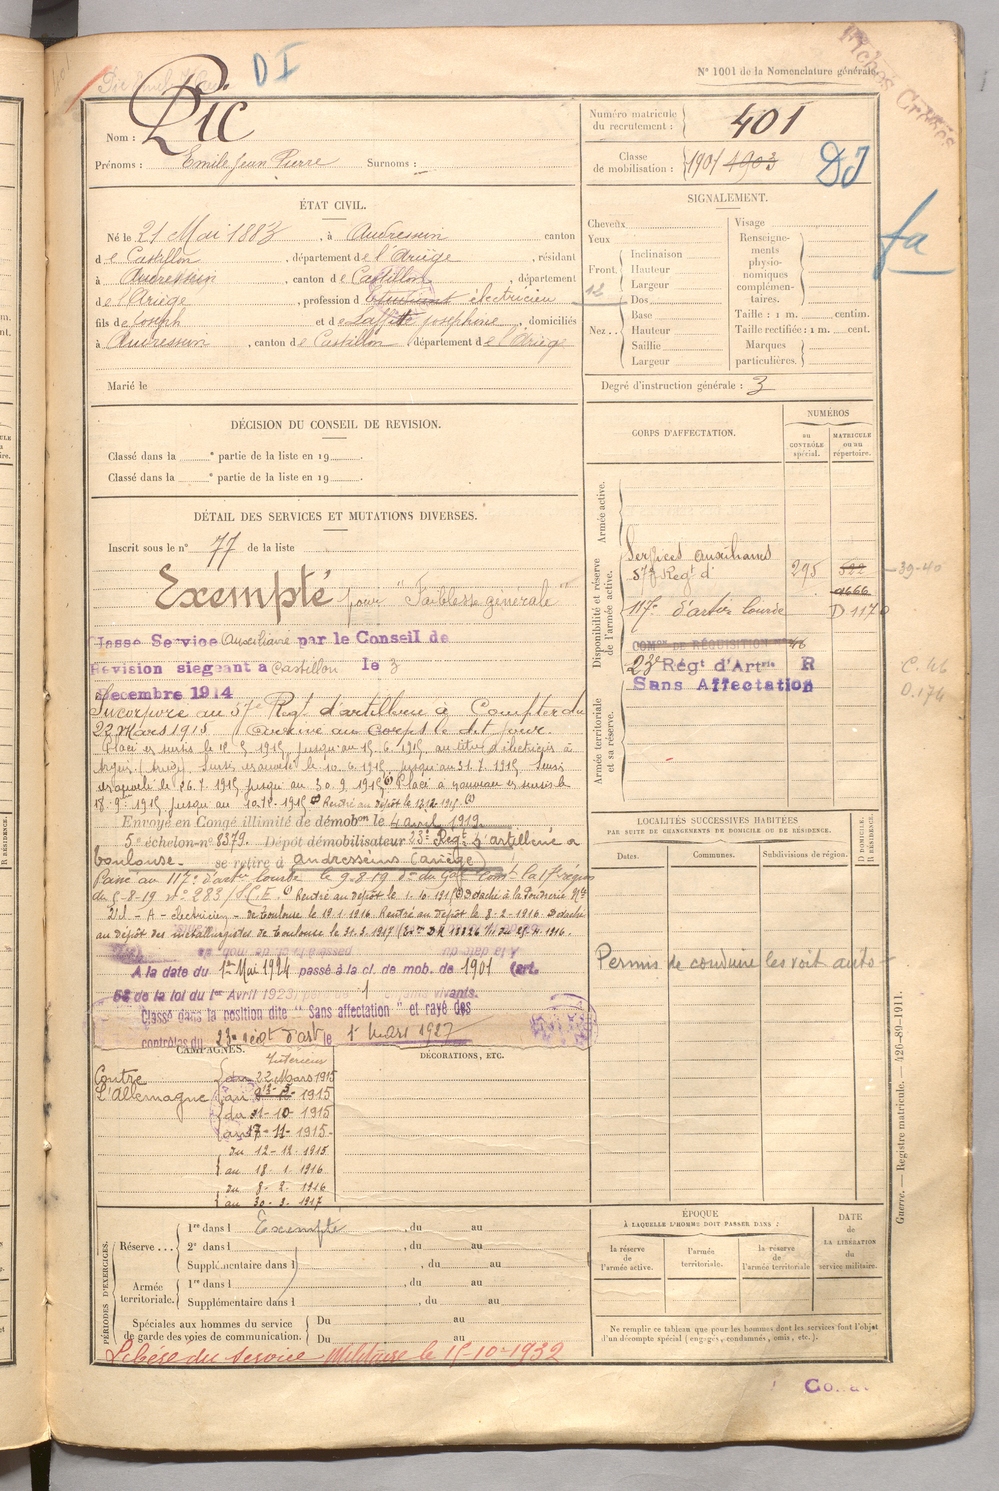 Pic Emile Jean
DI
Fichés Croisés
N° 1001 de la Nomenclature générale
Nom : Pic
Prénoms : Emile Jean Pierre Surnoms :
Numéro matricule du recrutement : 401
Classe de mobilisation : 1901 1903
DI
fa
ÉTAT CIVIL.
Né le 21 Mai 1883, à Audressein canton
de Castillon, département de l'Ariège, résidant
à Audressein, canton de Castillon, département
de l'Ariège, profession d'étudiant électricien
fils de Joseph et de Laffitte Joséphine, domiciliés
à Audressein, canton de Castillon département de l'Ariège
Marié le
SIGNALEMENT.
Cheveux
Yeux
Front. Inclinaison
Hauteur
Largeur
12
Nez .. Dos
Base
Hauteur
Saillie
Largeur
Visage
Renseignements physionomiques complémentaires.
Taille : 1 m. centim.
Taille rectifiée : 1 m. cent.
Marques particulières.
Degré d'instruction générale : 3
DÉCISION DU CONSEIL DE REVISION.
Classé dans la e partie de la liste en 19
Classé dans la e partie de la liste en 19
DÉTAIL DES SERVICES ET MUTATIONS DIVERSES.
Inscrit sous le n° 77 de la liste
Exempté pour "Faiblesse générale"
Classé Service Auxiliaire par le Conseil de
Révision siégeant à Castillon le 3
Decembre 1914
Incorporé au 57e Régt d'artillerie à Compter du
22 mars 1915 Arrivé au Corps le dit jour.
Placé en sursis le 12 5 1915, jusqu'au 15. 6. 1915, au titre d'électricien à
Sursis renouvelé le 10. 6. 1915 jusqu'au 31. 7. 1915 Sursis
renouvelé le 26. 7. 1915 jusqu'au 30. 9. 1915 Placé à nouveau en sursis le
jusqu'au Rentré au dépôt le 12.12.1915. (1)
Envoyé en Congé illimité de démobon le 4 avril 1919.
5e échelon n° 8379. Dépôt démobilisateur 23e Régt d'artillerie à
Toulouse. se retire à Andresseins (Ariège)
Passé au 117e d'artie lourde le 9-8-19 la 17e région
du 5-8-19 n° 283/S.C.E. (1) Rentré au dépôt le 1. 10. 1915 (2) Détaché à la Poudrerie Nle
A - électricien - de Toulouse le 18 1 1916 Rentré au dépôt le 8. 2 - 1916. Détaché
au dépôt des métallurgistes de Toulouse le 31. 3. 1917
A la date du 1er Mai 1924 passé à la cl. de mob. de 1901 (art.
58 de la loi du 1er Avril 1923) père de 1 enfants vivants.
Classé dans la position dite "Sans affectation" et rayé des
contrôles du 23e régt d'art le 1er Mars 1927
CORPS D'AFFECTATION.
NUMÉROS
au CONTRÔLE spécial.
MATRICULE ou au répertoire.
Armée active.
Disponibilité et réserve de l'armée active.
Services auxiliaires
57e Régt d' 295 522 39-40
4666
117e d'artie lourde D 1170
COMon DE RÉQUISITION No 46
23e Régt d'Artrie R
Sans Affectation
C. 46
D. 174
Armée territoriale et sa réserve.
LOCALITÉS SUCCESSIVES HABITÉES
PAR SUITE DE CHANGEMENTS DE DOMICILE OU DE RÉSIDENCE.
Dates. Communes. Subdivisions de région. D DOMICILE. R RÉSIDENCE.
Permis de conduire les voit auto
CAMPAGNES.
Contre L'Allemagne
Intérieur
du 22 Mars 1915
au 1915
du 1-10-1915
au 17-11-1915
du 12-12-1915
au 18-1-1916
du 8-2-1916
au 30-3-1917
DÉCORATIONS, ETC.
PÉRIODES D'EXERCICES.
Réserve ... 1re dans l Exempté, du au
2e dans l, du au
Supplémentaire dans l, du au
Armée territoriale. 1re dans l, du au
Supplémentaire dans l, du au
Spéciales aux hommes du service de garde des voies de communication. Du au
Du au
Libéré du Service Militaire le 15-10-1932
ÉPOQUE
À LAQUELLE L'HOMME DOIT PASSER DANS :
la réserve de l'armée active.
l'armée territoriale.
la réserve de l'armée territoriale
DATE de LA LIBÉRATION du service militaire.
Ne remplir ce tableau que pour les hommes dont les services font l'objet
d'un décompte spécial (engagés, condamnés, omis, etc.).
Guerre. — Registre matricule. — 426-89-1911.